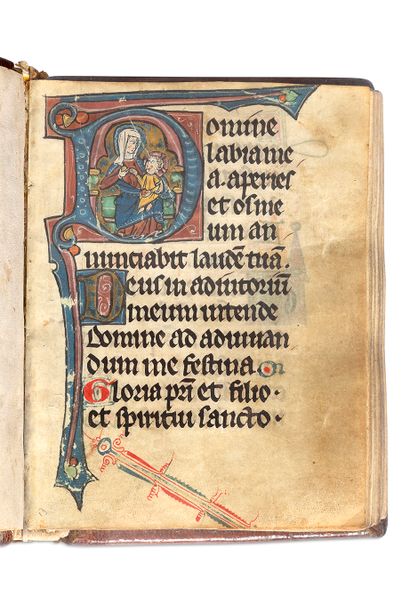 Domine
labia me
a. aperies
et os me
um an
nunciabit laudē tuā.
Deus in adiutoriū
meum intende
Domine ad adiuuan
dum me festina.
Gloria pr̄i et filio·
et spiritui sancto·